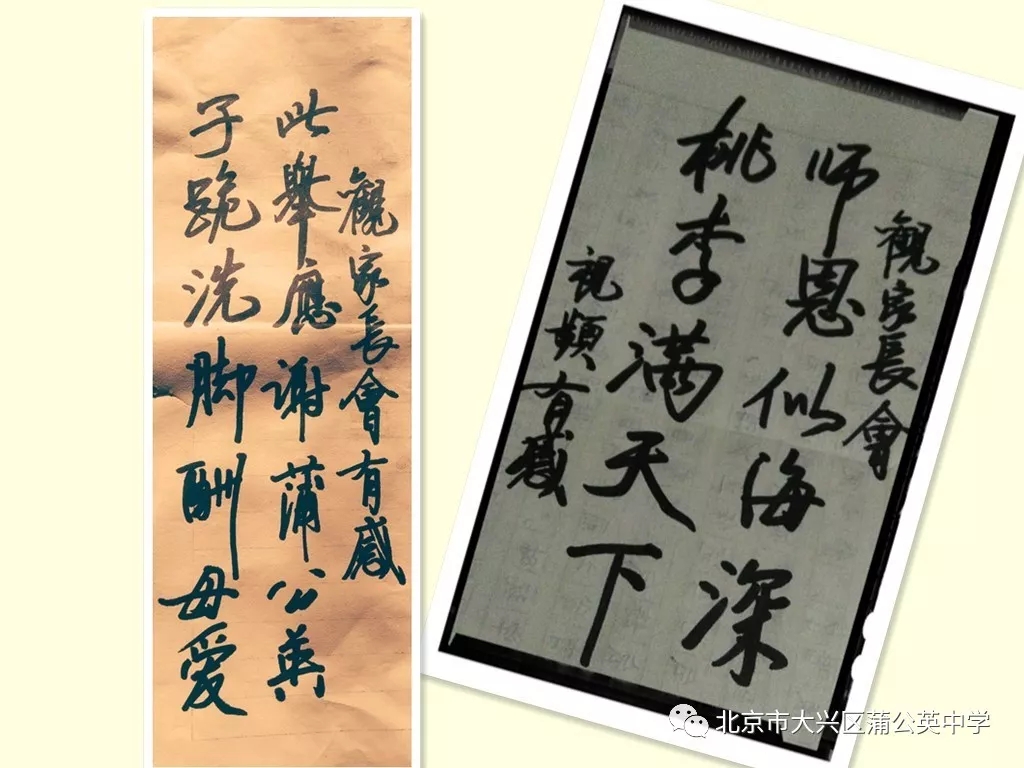 觀家長會有感
此舉應谢蒲公英
子跪洗脚酬母愛
觀家長會
师恩似海深
桃李满天下
視頻有感
北京市大兴区蒲公英中学